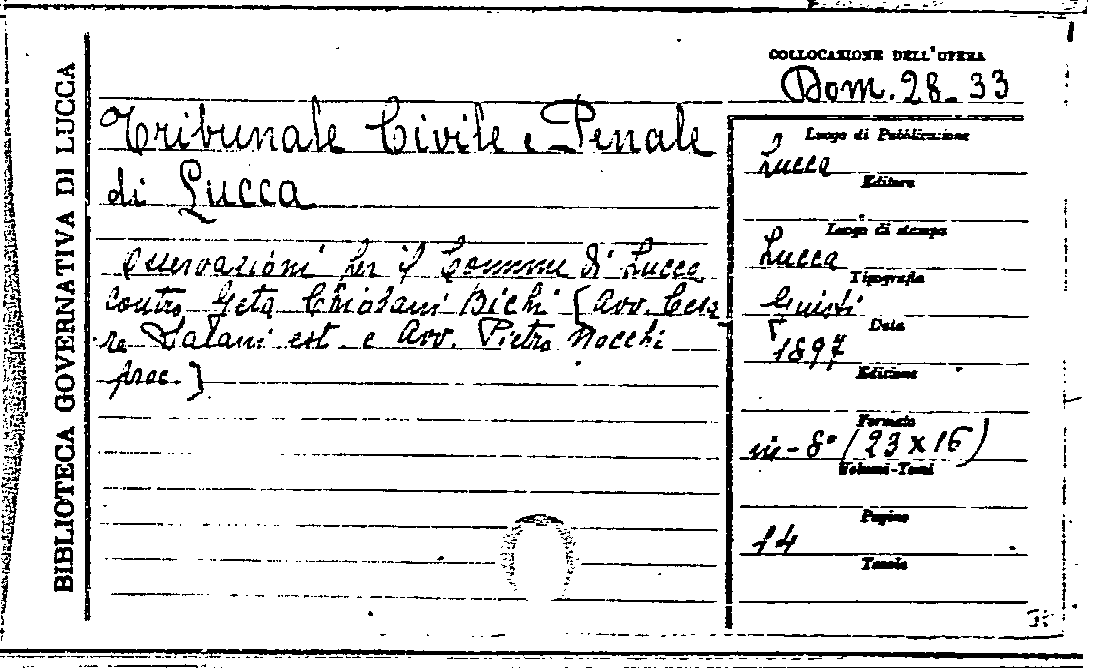 BIBLIOTECA GOVERNATIVA DI LUCCA
COLLOCAZIONE DELL'OPERA
Dom. 28_33
Tribunale Civile e Penale
di Lucca
Osservazioni per il Comune di Lucca
contro Geta Chiolani Bichi [Avv. Cesa
re est. e Avv. Pietro Nocchi
proc.]
Luogo di Pubblicazione
Lucca
Editore
Luogo di stampa
Lucca
Tipografia
Giusti
Data
1897
Edizione
Formato
in-8° (23 x 16)
Volumi-Tomi
Pagine
14
Tavole